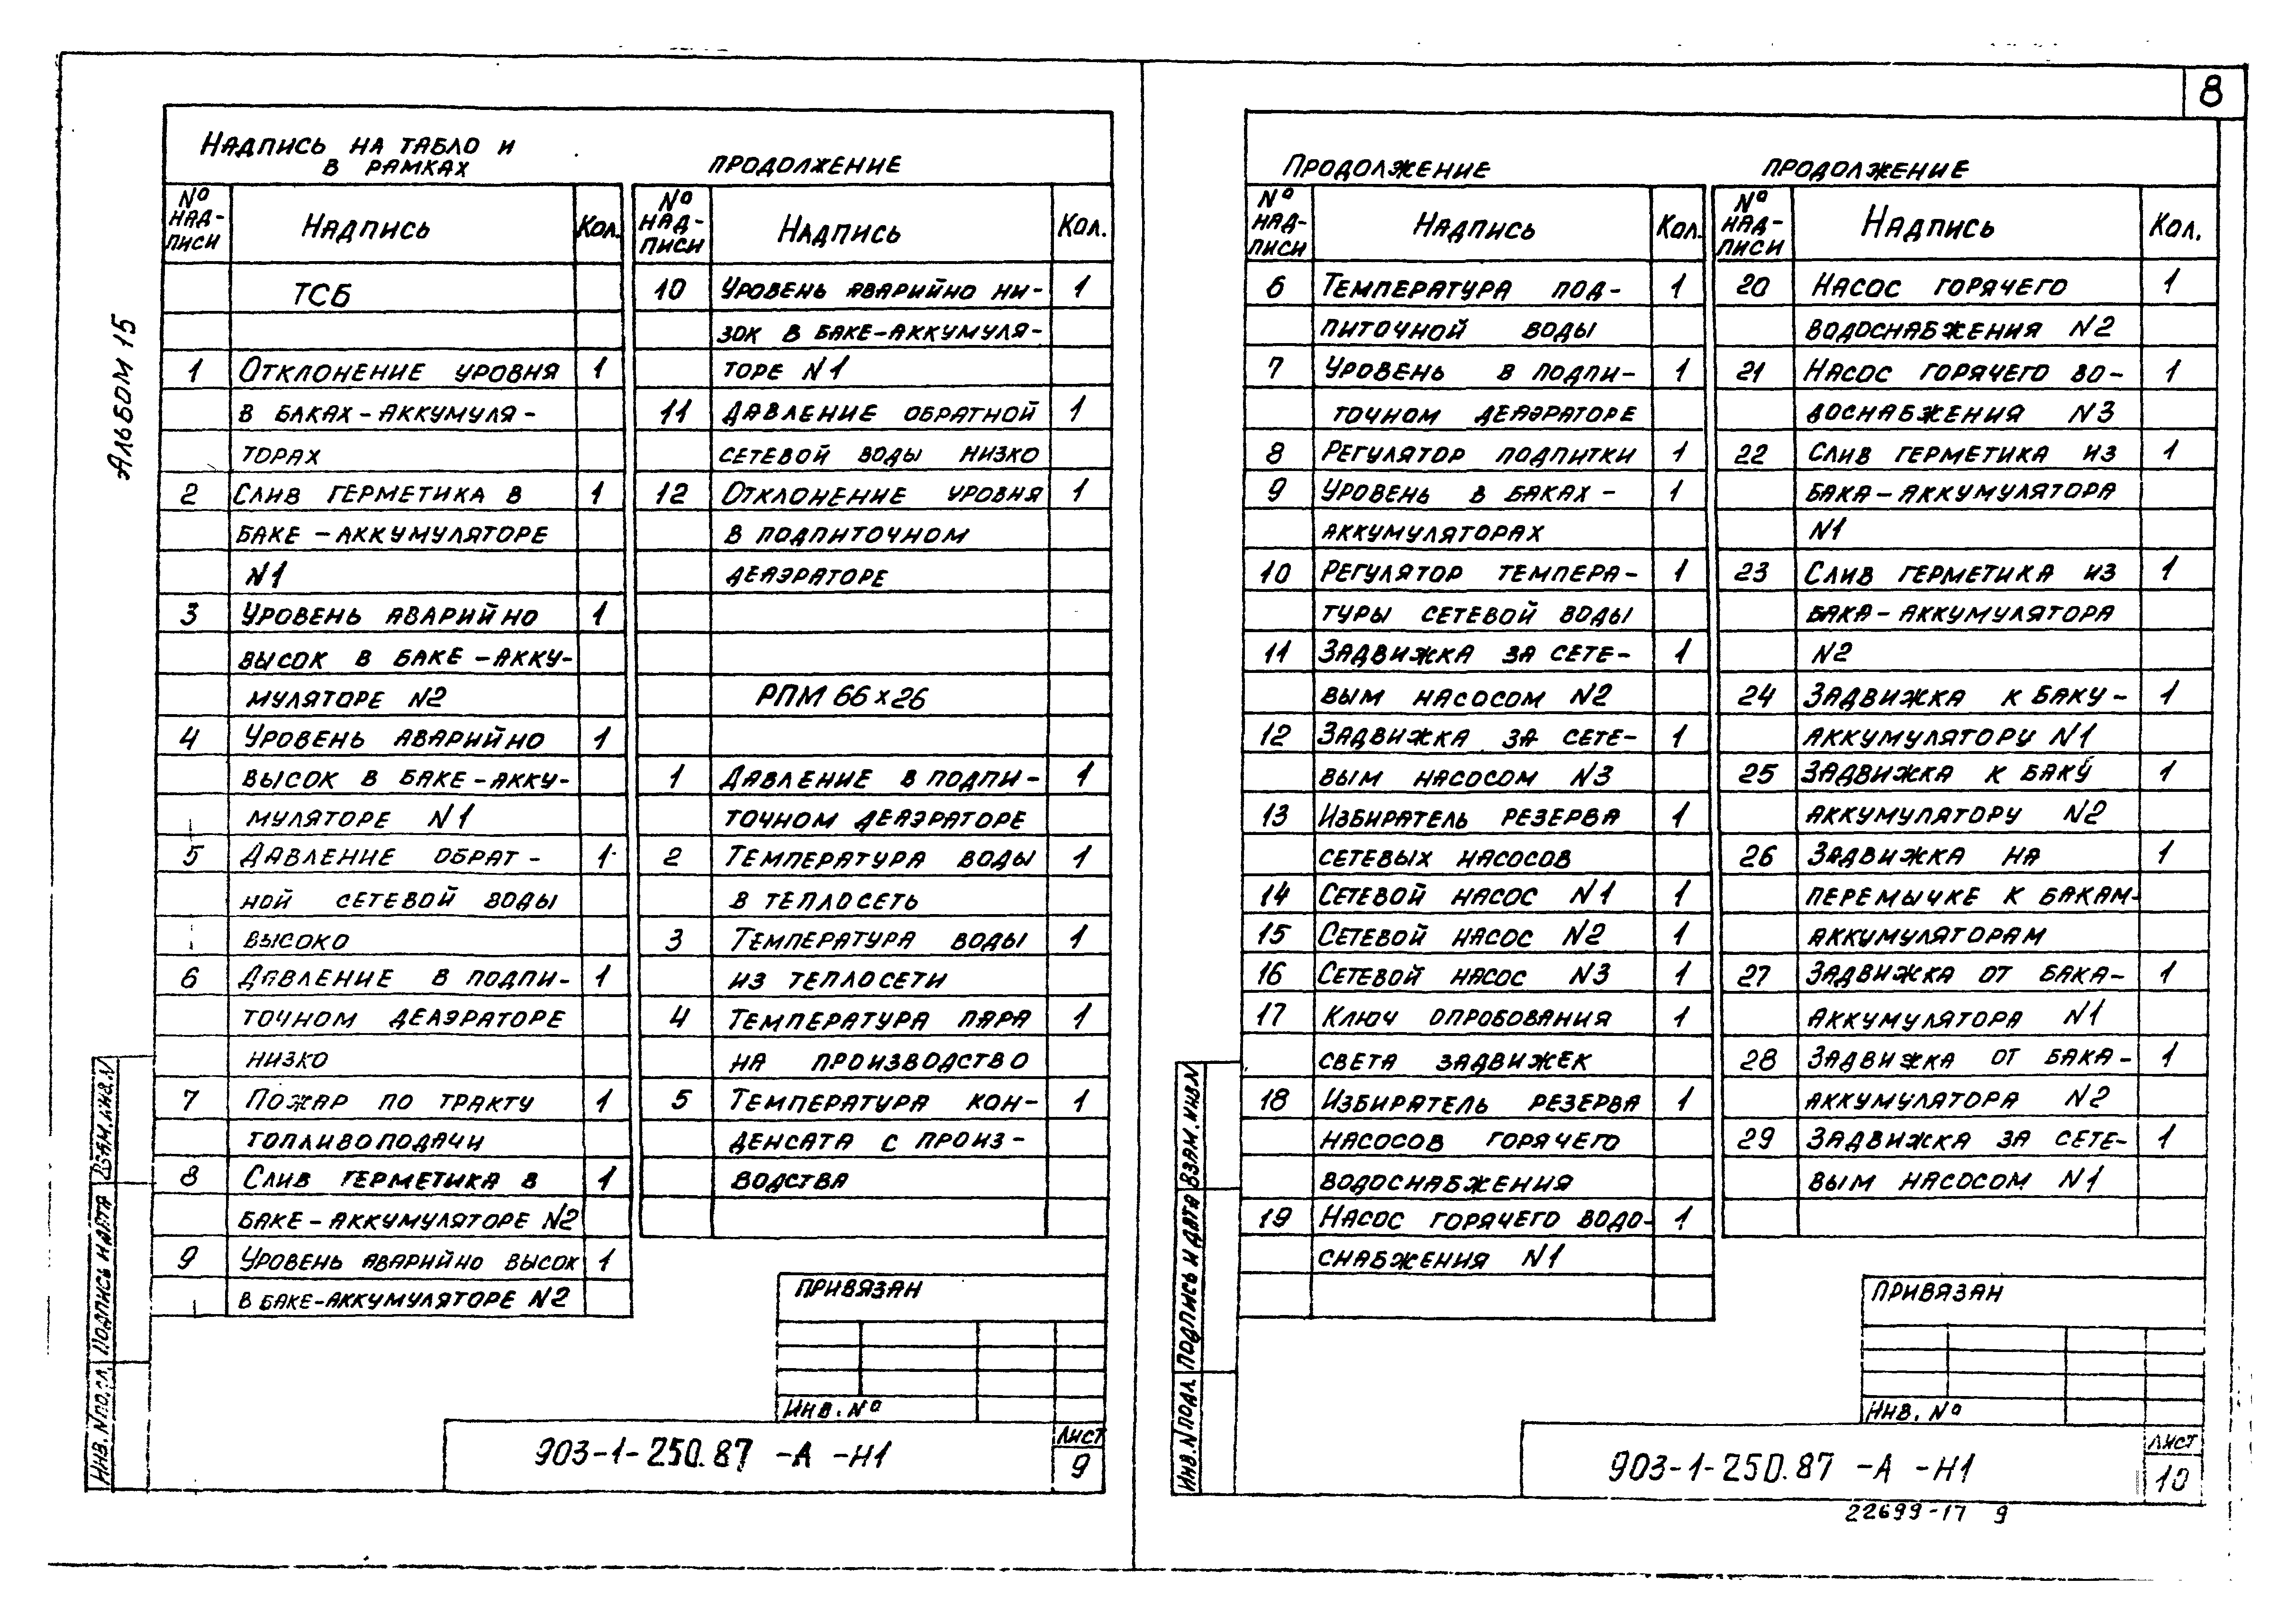 8
Альбом 15
Надпись на табло и
в рамках
№ над-писи Надпись Кол.
ТСБ
1 Отклонение уровня 1
в баках-аккумуля-
торах
2 Слив герметика в 1
баке-аккумуляторе
N1
3 Уровень аварийно 1
высок в баке-акку-
муляторе N2
4 Уровень аварийно 1
высок в баке-акку-
муляторе N1
5 Давление обрат- 1
ной сетевой воды
высоко
6 Давление в подпи- 1
точном деаэраторе
низко
7 Пожар по тракту 1
топливоподачи
8 Слив герметика в 1
баке-аккумуляторе N2
9 Уровень аварийно высок 1
в баке-аккумуляторе N2
продолжение
№ над-писи Надпись Кол.
10 Уровень аварийно ни- 1
зок в баке-аккумуля-
торе N1
11 Давление обратной 1
сетевой воды низко
12 Отклонение уровня 1
в подпиточном
деаэраторе
РПМ 66х26
1 Давление в подпи- 1
точном деаэраторе
2 Температура воды 1
в теплосеть
3 Температура воды 1
из теплосети
4 Температура пара 1
на производство
5 Температура кон- 1
денсата с произ-
водства
Привязан
Инв. №
903-1-250.87 -А -Н1
Лист
9
Инв. N подл. Подпись и дата Взам. инв. N
Продолжение
№ над-писи Надпись Кол.
6 Температура под- 1
питочной воды
7 Уровень в подпи- 1
точном деаэраторе
8 Регулятор подпитки 1
9 Уровень в баках- 1
аккумуляторах
10 Регулятор темпера- 1
туры сетевой воды
11 Задвижка за сете- 1
вым насосом N2
12 Задвижка за сете- 1
вым насосом N3
13 Избиратель резерва 1
сетевых насосов
14 Сетевой насос N1 1
15 Сетевой насос N2 1
16 Сетевой насос N3 1
17 Ключ опробования 1
света задвижек
18 Избиратель резерва 1
насосов горячего
водоснабжения
19 Насос горячего водо- 1
снабжения N1
продолжение
№ над-писи Надпись Кол.
20 Насос горячего 1
водоснабжения N2
21 Насос горячего во- 1
доснабжения N3
22 Слив герметика из 1
бака-аккумулятора
N1
23 Слив герметика из 1
бака-аккумулятора
N2
24 Задвижка к баку- 1
аккумулятору N1
25 Задвижка к баку 1
аккумулятору N2
26 Задвижка на 1
перемычке к бакам-
аккумуляторам
27 Задвижка от бака- 1
аккумулятора N1
28 Задвижка от бака- 1
аккумулятора N2
29 Задвижка за сете- 1
вым насосом N1
Привязан
Инв. №
903-1-250.87 -А -Н1
Лист
10
Инв. N подл. Подпись и дата Взам. инв N
22699-17 9